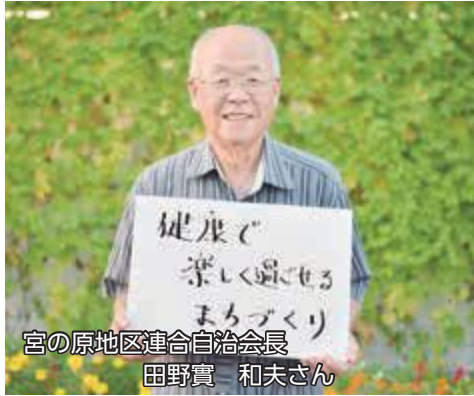 健康で
楽しく過ごせる
まちづくり
宮の原地区連合自治会長
田野實　和夫さん